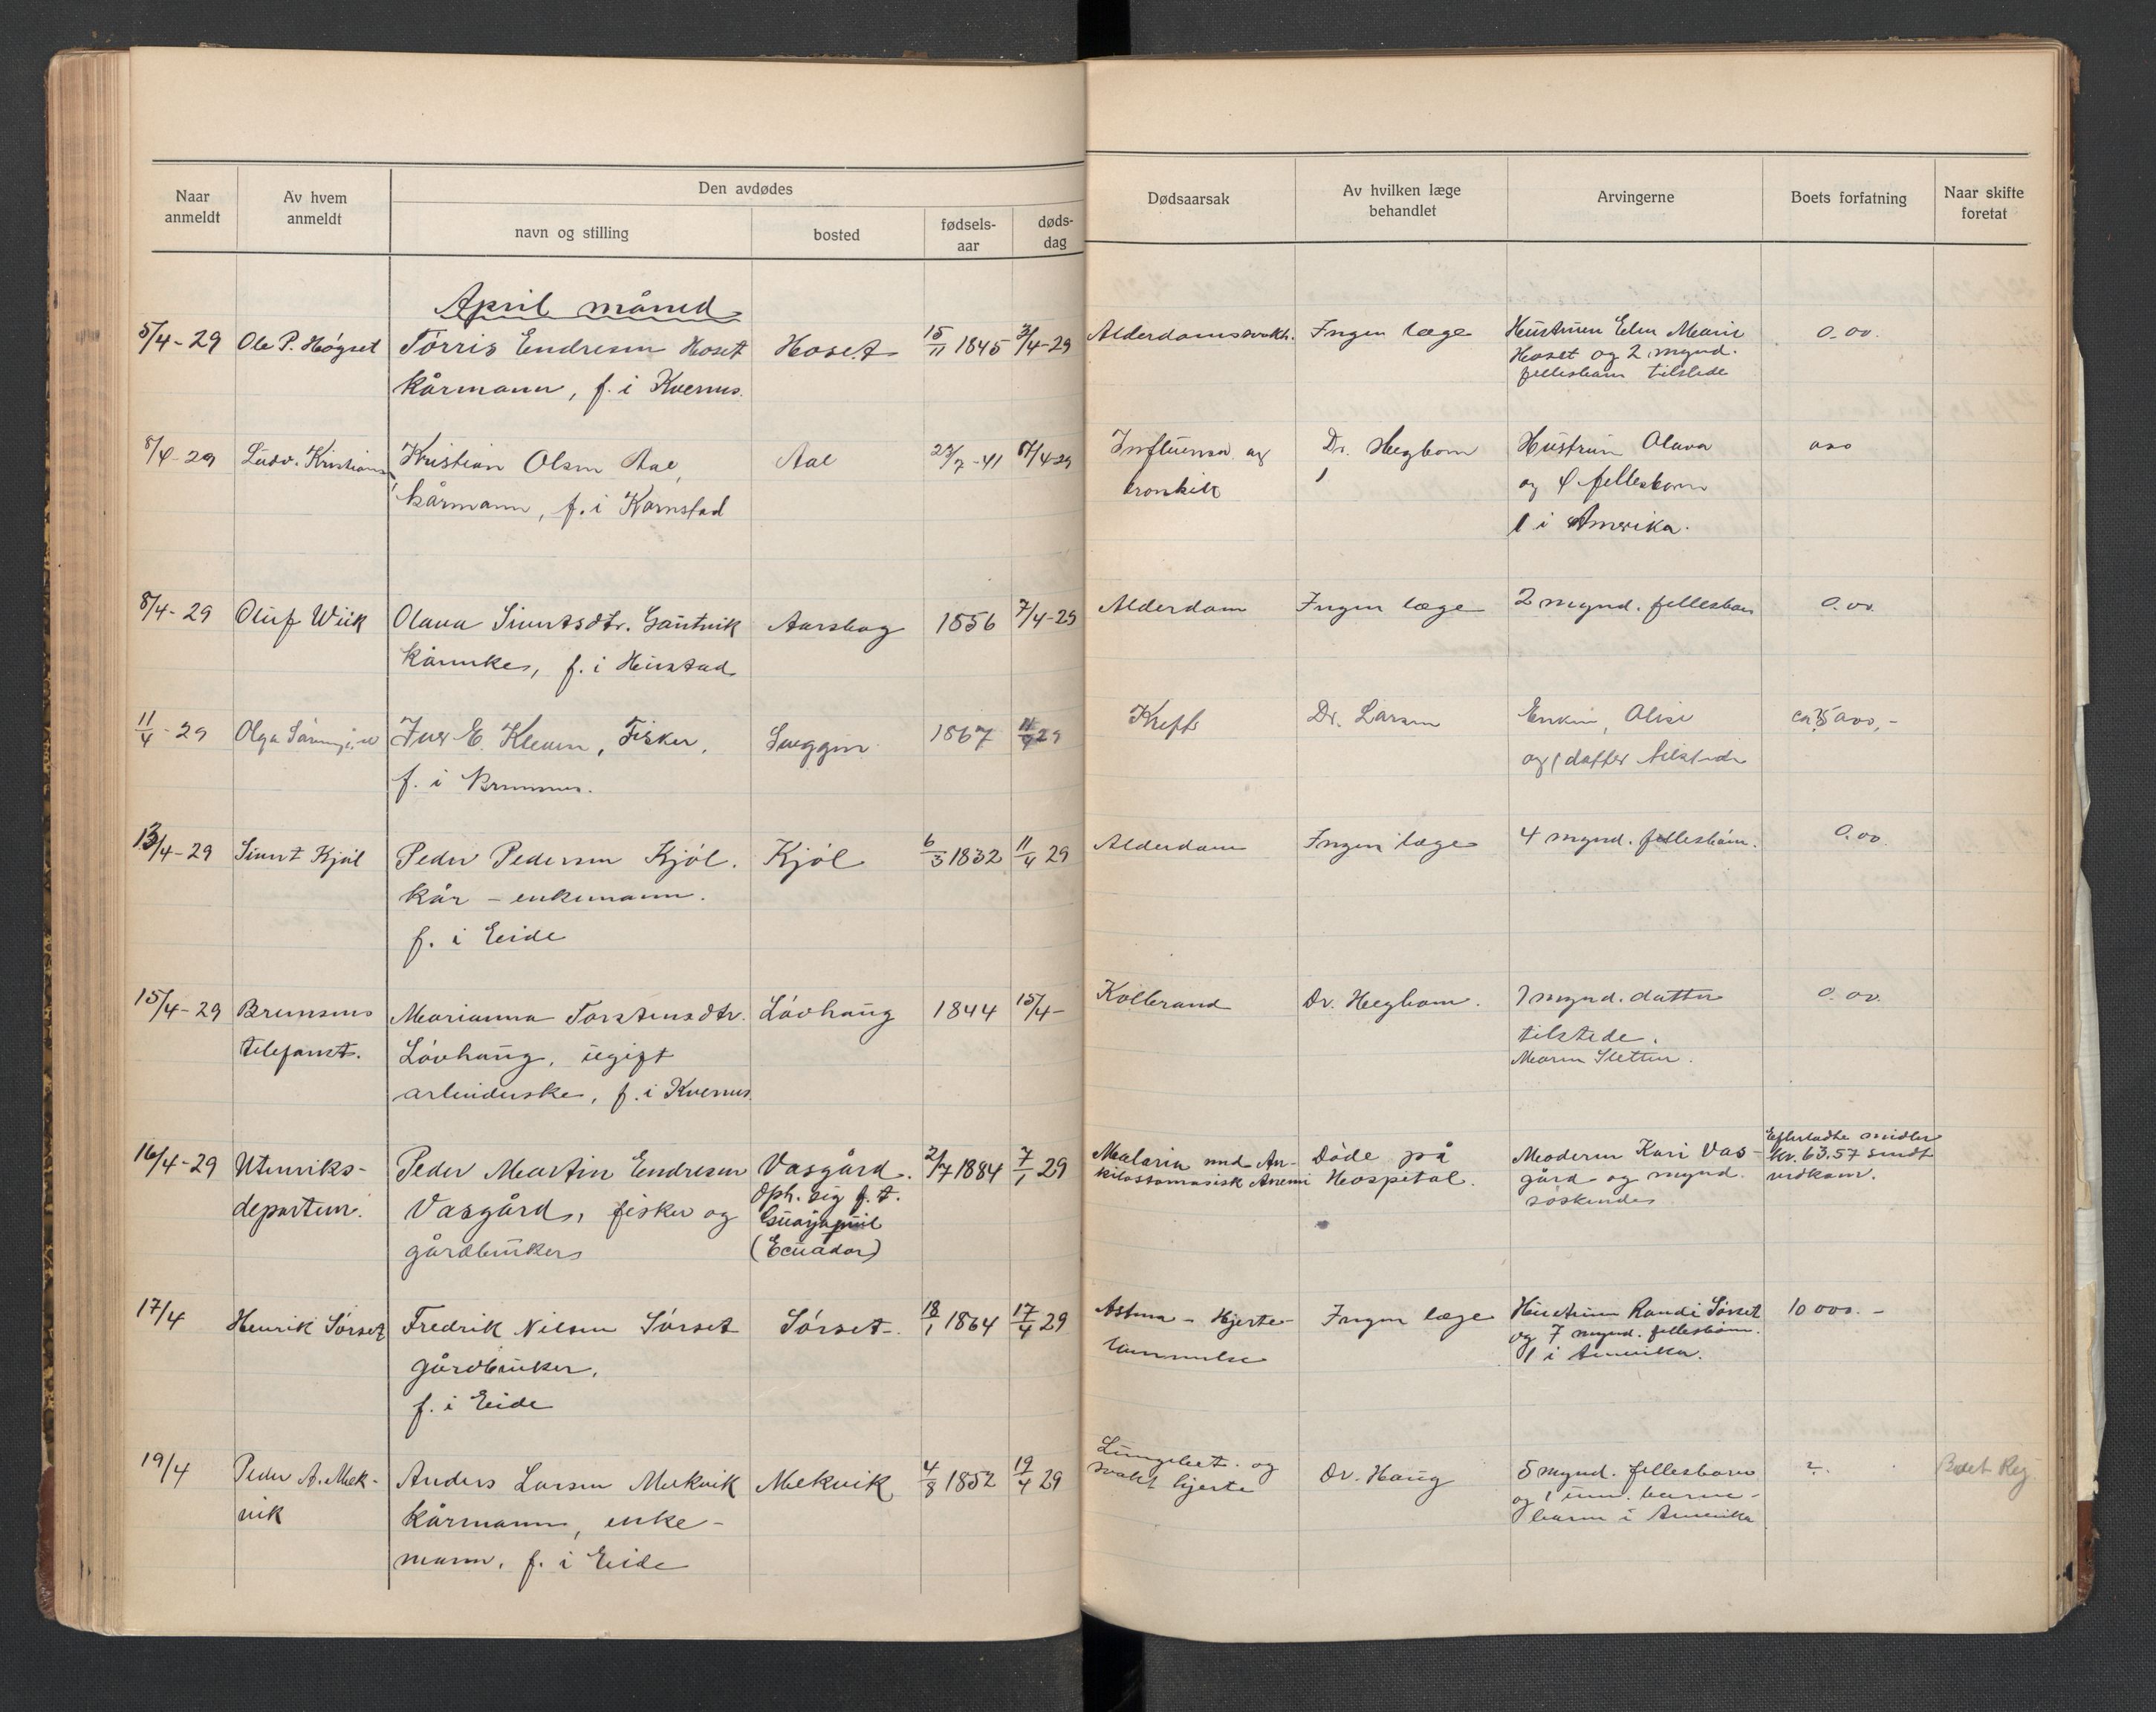 Naar anmeldt
Av hvem anmeldt
Den avdødes
navn og stilling
bosted
fødsels-aar
døds-dag
Dødsaarsak
Av hvilken læge behandlet
Arvingerne
Boets forfatning
Naar skifte foretat
April måned
5/4-29 Ole P. Høgset Torris Endresen Hoset Hoset 15/11 1845 3/4-29 Alderdomssvakh. Ingen læge Hustruen Elen Marie 0.00.
kårmann, f. i Kvernes. Hoset og 2 mynd.
fellesbarn tilstede
8/4-29 Ludv. Kristians Kristian Olsen Aae, Aae 23/7-41 6/4-29 Influensa og Dr. Hegbom Hustruen Olava 000
kårmann, f. i Kornstad bronkit og fellesbarn
1 i Amerika.
8/4-29 Oluf Wiik Olava Sivertsdtr. Gautvik Aarsbog 1856 7/4-29 Alderdom Ingen læge 2 mynd. fellesbarn 0.00.
kårenke, f. i Hustad
11/4-29 Olga Iver E. Kleven, Fisker, Sveggen 1867 11/4 29 Kreft Dr. Larsen Enken, Olise ca.
f. i Bremsnes. og 1 datter tilstede
13/4-29 Sivert Kjøl Peder Pedersen Kjøl. Kjøl 6/3 1832 11/4 29 Alderdom Ingen læge 4 mynd. fellesbarn. 0.00.
kår - enkemann.
f. i Eide
15/4-29 Bremsnes Marianna Torstensdtr. Løvhaug 1844 15/4- Kolbrand Dr. Hegbom. 1 mynd. datter 0.00.
telefonst. Løvhaug, ugift tilstede.
arbeiderske, f. i Kvernes. Maren Sletten.
16/4-29 Utenriks- Peder Martin Endresen Vasgård. 2/7 1884 7/1 29 Malaria med An- Døde på Moderen Kari Vas- Efterladte midler
departem. Vasgård, fisker og Oph. sig f. t. kilostomasisk Anemi Hospital. gård og mynd. Kr. 63.57 sendt
gårdbruker Guayaquil søskende vedkom.
(Ecuador)
17/4 Henrik Sørset Fredrik Nilsen Sørset Sørset 18/1 1864 17/4 29 Astma - Hjerte- Ingen læge Hustruen Randi Sørset 10 000.-
gårdbruker, lammelse og 7 mynd. fellesbarn.
f. i Eide 1 i Amerika.
19/4 Peder A. Mek- Anders Larsen Mekvik Mekvik 4/8 1852 19/4 29 Lungebet. og Dr. Haug 5 mynd. fellesbarn ?. Boet Rej
vik kårmann, enke- svakt hjerte og 1 um. barne-
mann, f. i Eide barn i Amerika